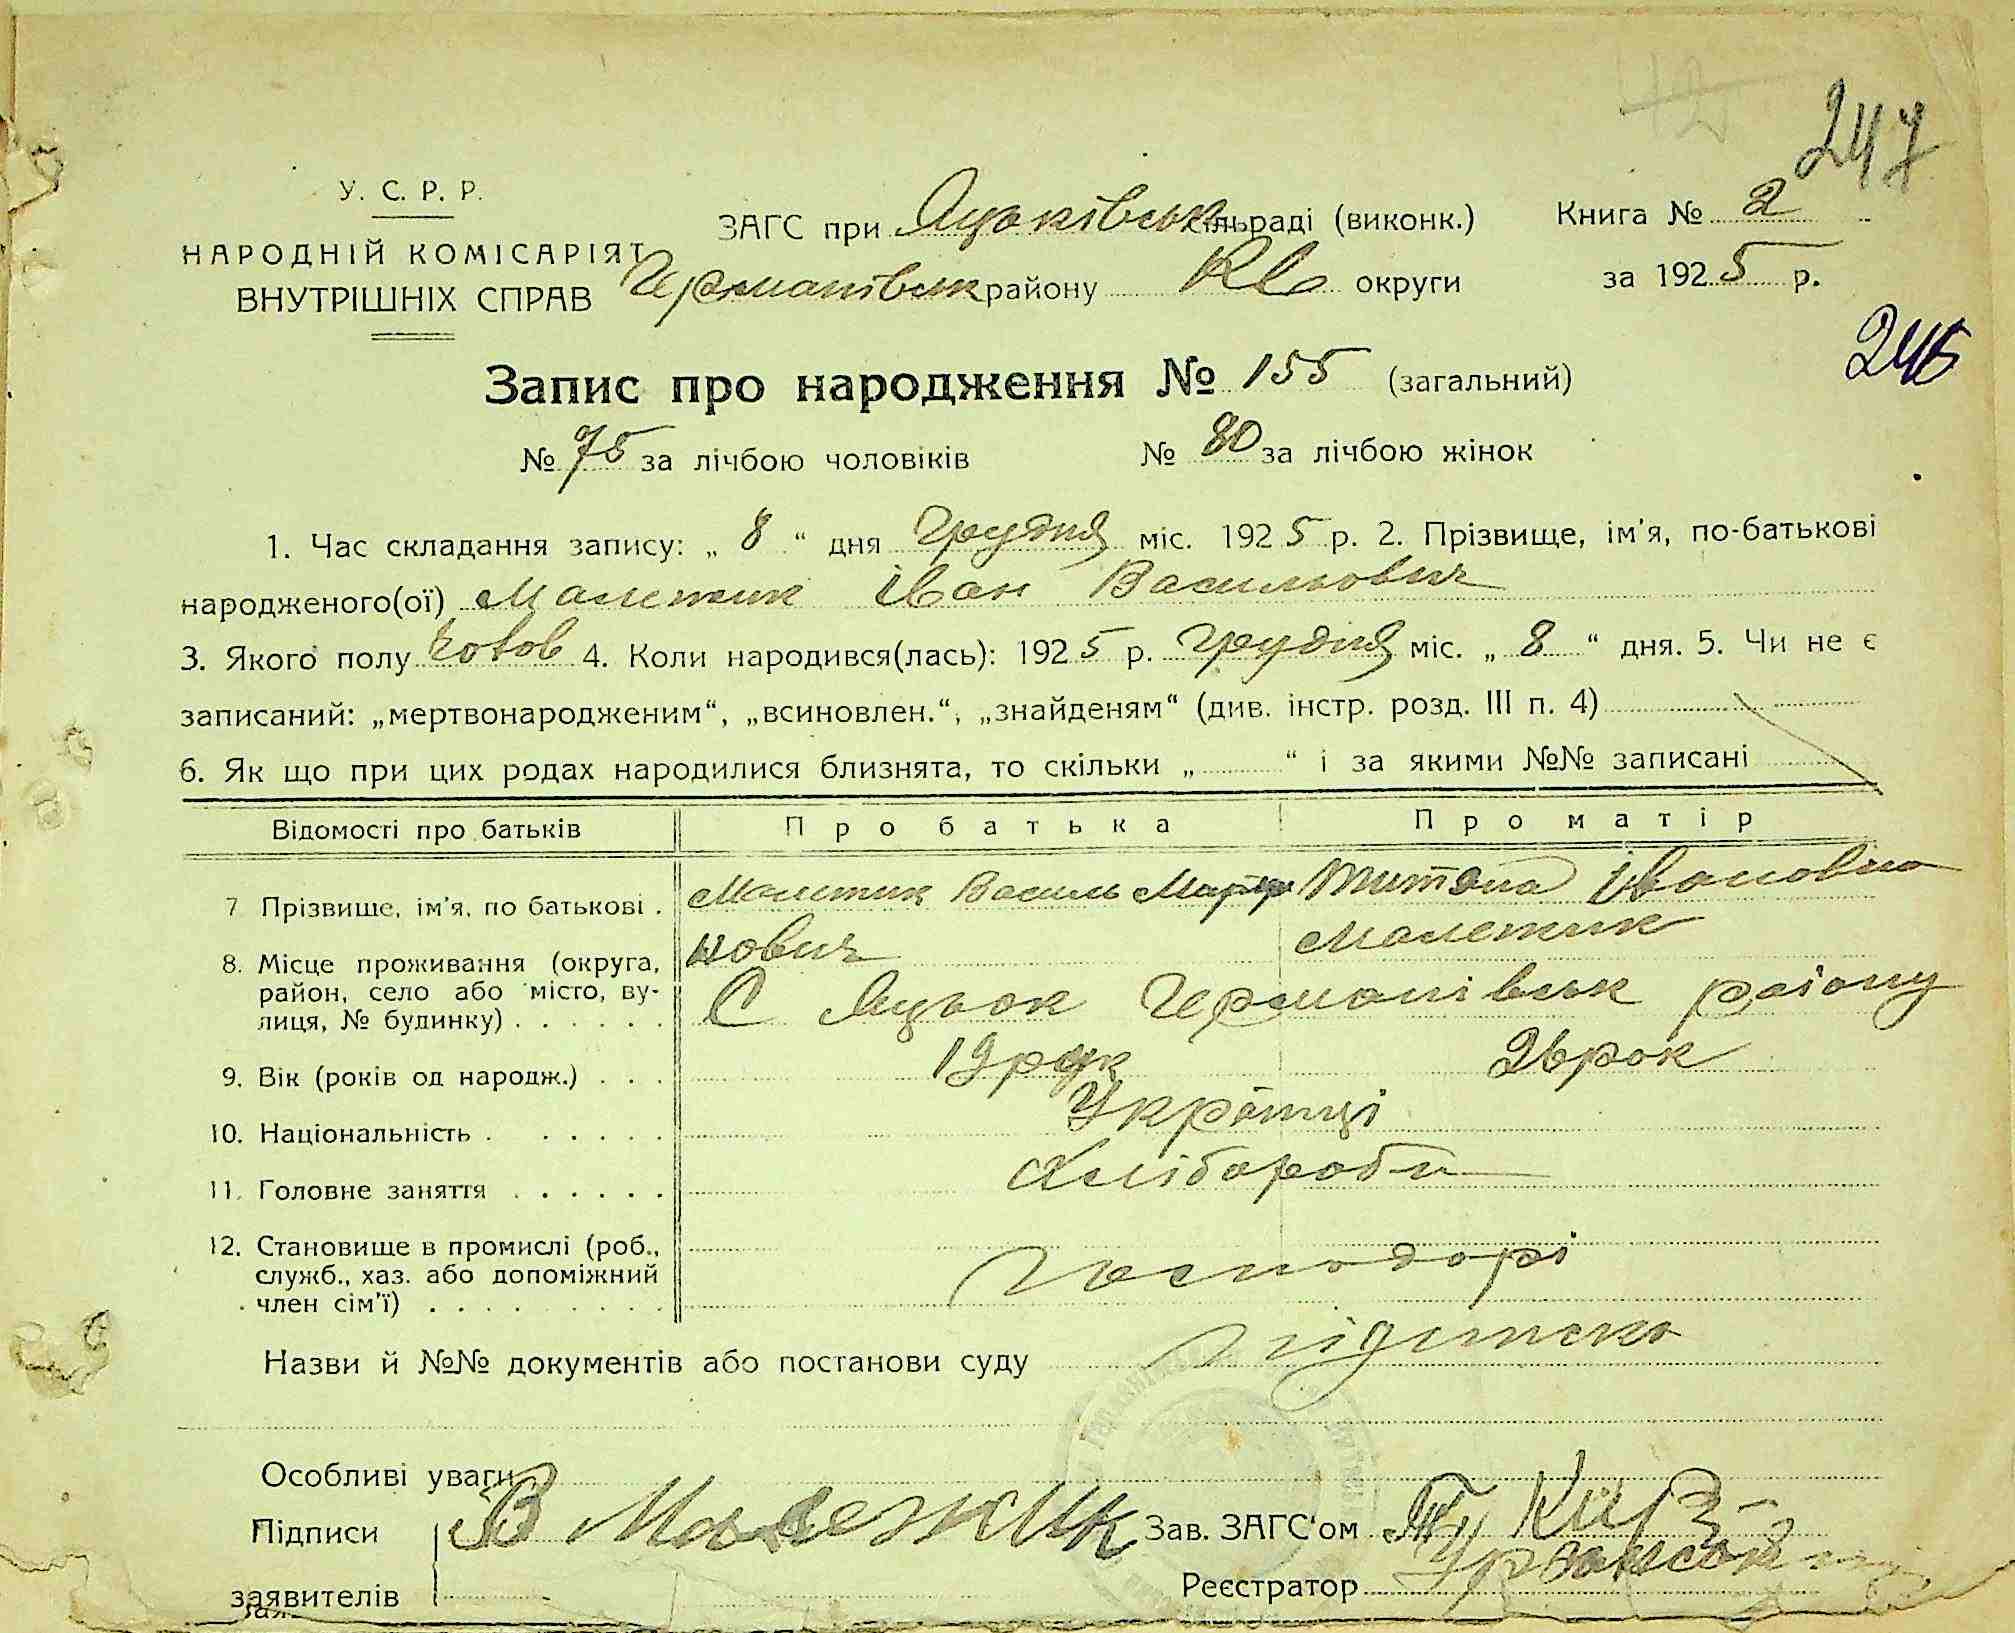 247
У. С. Р. Р.
НАРОДНІЙ КОМІСАРІЯТ
ВНУТРІШНІХ СПРАВ
ЗАГС при Яцьківськ сільраді (виконк.) Книга № 2
Германівськ району Кв округи за 1925 р.
246
Запис про народження № 155 (загальний)
№ 75 за лічбою чоловіків № 80 за лічбою жінок
1. Час складання запису: „ 8 “ дня Грудня міс. 1925 р. 2. Прізвище, ім'я, по-батькові
народженого(ої) Малежик Іван Васильович
3. Якого полу Чолов 4. Коли народився(лась): 1925 р. Грудня міс. „ 8 “ дня. 5. Чи не є
записаний: „мертвонародженим“, „всиновлен.“, „знайденям“ (див. інстр. розд. III п. 4)
6. Як що при цих родах народилися близнята, то скільки „ “ і за якими №№ записані
Відомості про батьків Про батька Про матір
7 Прізвище, ім'я, по батькові . Малежик Василь Мартинович Титяна Івановна Малежик
8. Місце проживання (округа,
район, село або місто, ву-
лиця, № будинку) . . . . . . С Яцьок Германівськ району
9. Вік (років од народж.) . . . 19 рок 26 рок
10. Національність . . . . . . Українці
11. Головне заняття . . . . . . Хлібороби
12. Становище в промислі (роб.,
служб., хаз. або допоміжний
член сім'ї) . . . . . . . . . Господорі
Назви й №№ документів або постанови суду
Особливі уваги
Підписи В Малежик Зав. ЗАГС'ом
заявителів Реєстратор